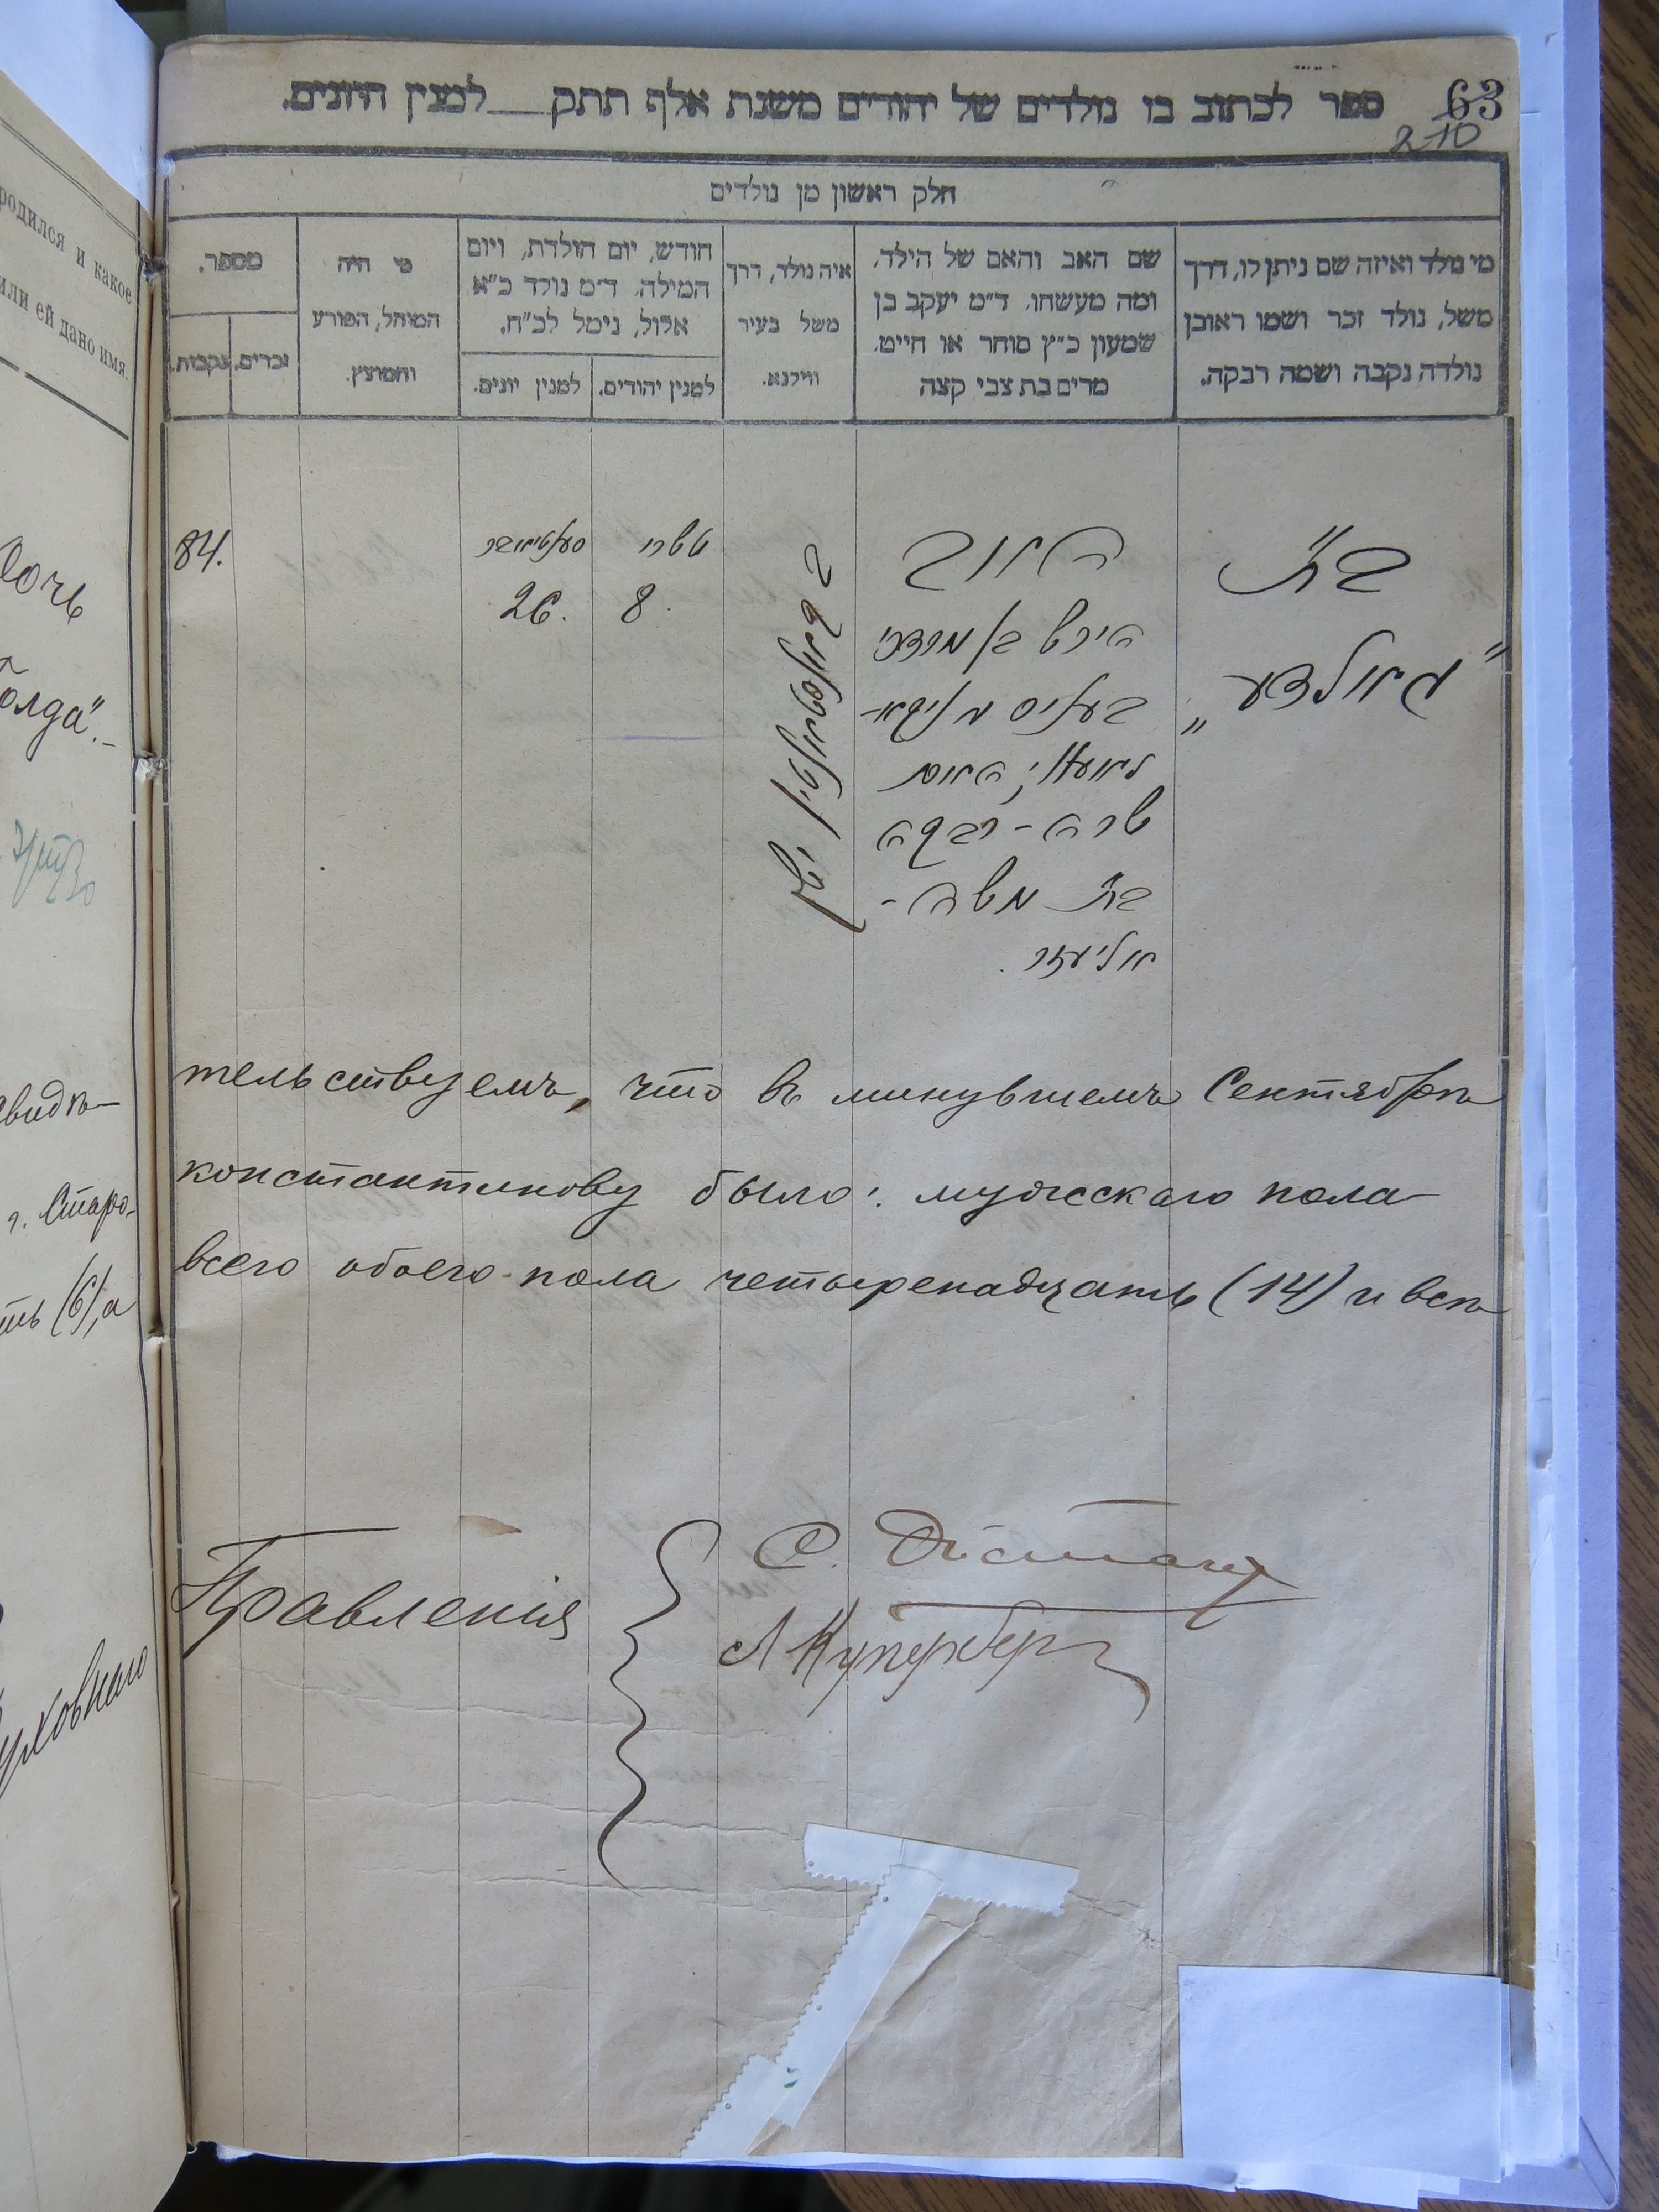 63
210
ספר לכתוב בו נולדים של יהודים משנת אלף תתק למנין היונים.
חלק ראשון מן נולדים
מי נולד ואיזה שם ניתן לו, דרך
משל, נולד זכר ושמו ראובן
נולדה נקבה ושמה רבקה.
שם האב והאם של הילד,
ומה מעשהו. ד"מ יעקב בן
שמעון כ"ץ סוחר או חייט.
מרים בת צבי קצה
איה נולד, דרך
משל בעיר
ווילנא.
חודש, יום הולדת, ויום
המילה. ד"מ נולד כ"א
אלול, נימל לכ"ח.
למנין יהודים.
למנין יונים.
מי היה
המוהל, הפורע
והמוצץ.
מספר.
זכרים.
נקבות.
בת
"גאולדע"
האב
הירש בן מרדכי
שרה-רבקה
בת משה-
אליעזר.
טשרי
8.
סעפטיאבר
26.
84.
родился и какое
или ей дано имя.
Дочь
олда".
тельствуемъ, что въ минувшемъ Сентябрѣ
г. Старо-
константинову было: мужскаго пола
ть (6), а
всего обоего пола четыренадцать (14) и всѣ
Правленія
А Купербергъ
уховнаго